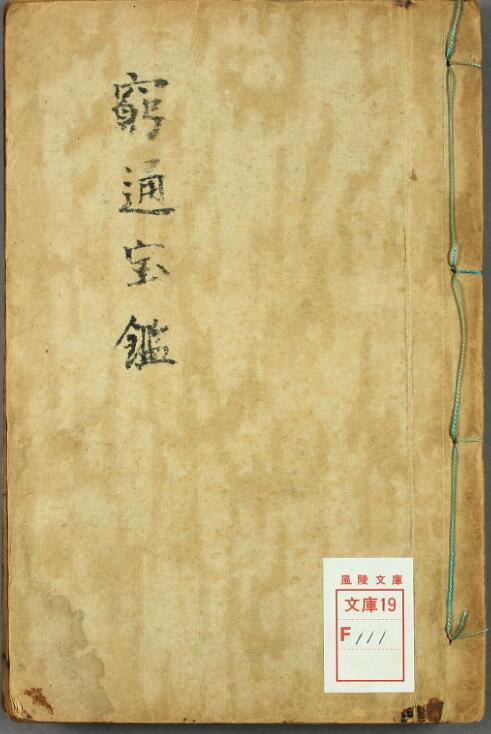 窮通宝鑑
風陵文庫
文庫19
F111